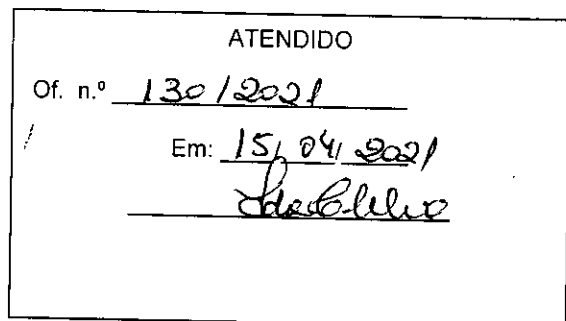 ATENDIDO
Of. n.º 130/2021
Em: 15/04/2021